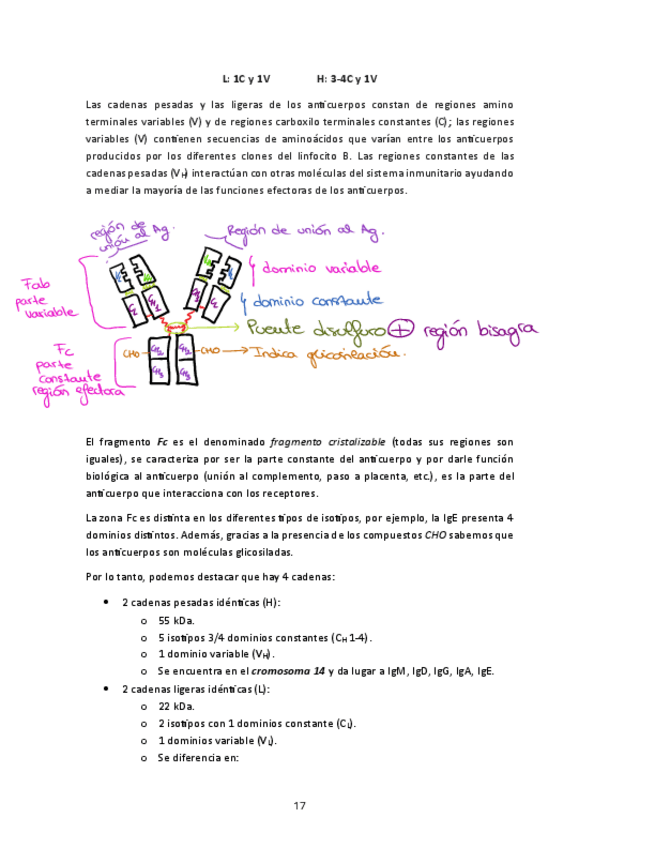 L: 1C y 1V H: 3-4C y 1V
Las cadenas pesadas y las ligeras de los anticuerpos constan de regiones amino
terminales variables (V) y de regiones carboxilo terminales constantes (C); las regiones
variables (V) contienen secuencias de aminoácidos que varían entre los anticuerpos
producidos por los diferentes clones del linfocito B. Las regiones constantes de las
cadenas pesadas (VH) interactúan con otras moléculas del sistema inmunitario ayudando
a mediar la mayoría de las funciones efectoras de los anticuerpos.
región de
unión al Ag.
Región de unión al Ag.
Fab
parte
variable
dominio variable
dominio constante
CL CH1 CH1 CL
Puente disulfuro + región bisagra
Fc
parte
constante
región efectora
CHO CH2 CH2 CHO → Indica glicosilación.
CH3 CH3
El fragmento Fc es el denominado fragmento cristalizable (todas sus regiones son
iguales), se caracteriza por ser la parte constante del anticuerpo y por darle función
biológica al anticuerpo (unión al complemento, paso a placenta, etc.), es la parte del
anticuerpo que interacciona con los receptores.
La zona Fc es distinta en los diferentes tipos de isotipos, por ejemplo, la IgE presenta 4
dominios distintos. Además, gracias a la presencia de los compuestos CHO sabemos que
los anticuerpos son moléculas glicosiladas.
Por lo tanto, podemos destacar que hay 4 cadenas:
• 2 cadenas pesadas idénticas (H):
o 55 kDa.
o 5 isotipos 3/4 dominios constantes (CH 1-4).
o 1 dominio variable (VH).
o Se encuentra en el cromosoma 14 y da lugar a IgM, IgD, IgG, IgA, IgE.
• 2 cadenas ligeras idénticas (L):
o 22 kDa.
o 2 isotipos con 1 dominios constante (CL).
o 1 dominios variable (VL).
o Se diferencia en:
17